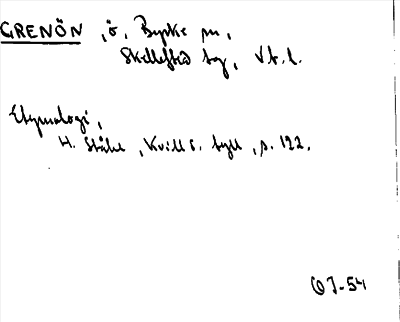 GRENÖN, ö, Byske sn,
Skellefteå tg, Vb. l.
Etymologi,
H. Ståhl, Kvill s. byll, s. 122.
OJ-54